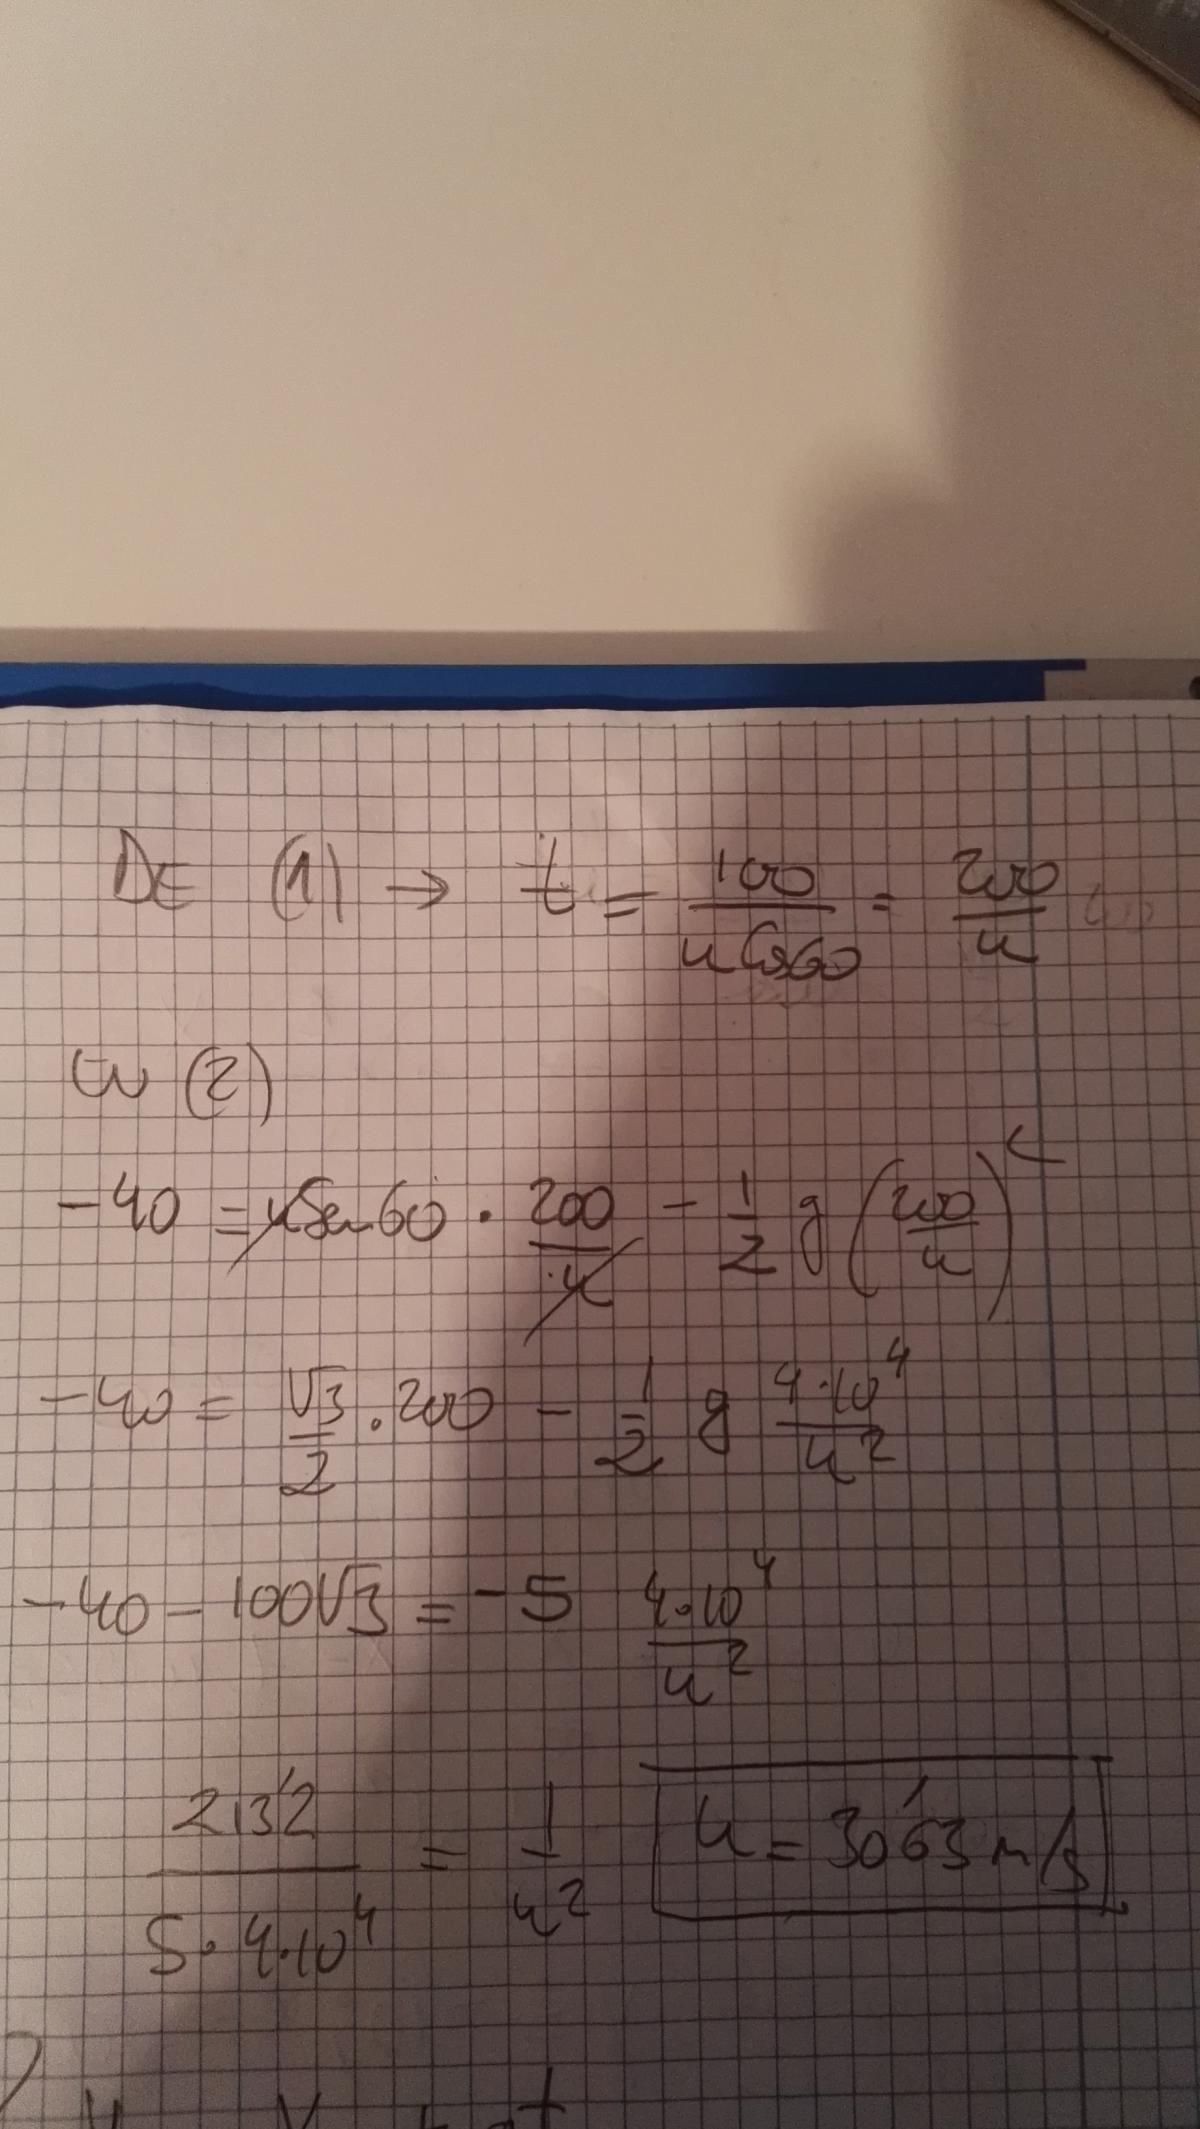 DE (1) → t = 100/(u Cos60) = 200/u
EN (2)
-40 = u Sen 60 · 200/u - 1/2 g (200/u)²
-40 = √3/2 · 200 - 1/2 g 4·10⁴/u²
-40 - 100√3 = -5 4·10⁴/u²
213'2/(5·4·10⁴) = 1/u² u = 30'63 m/s